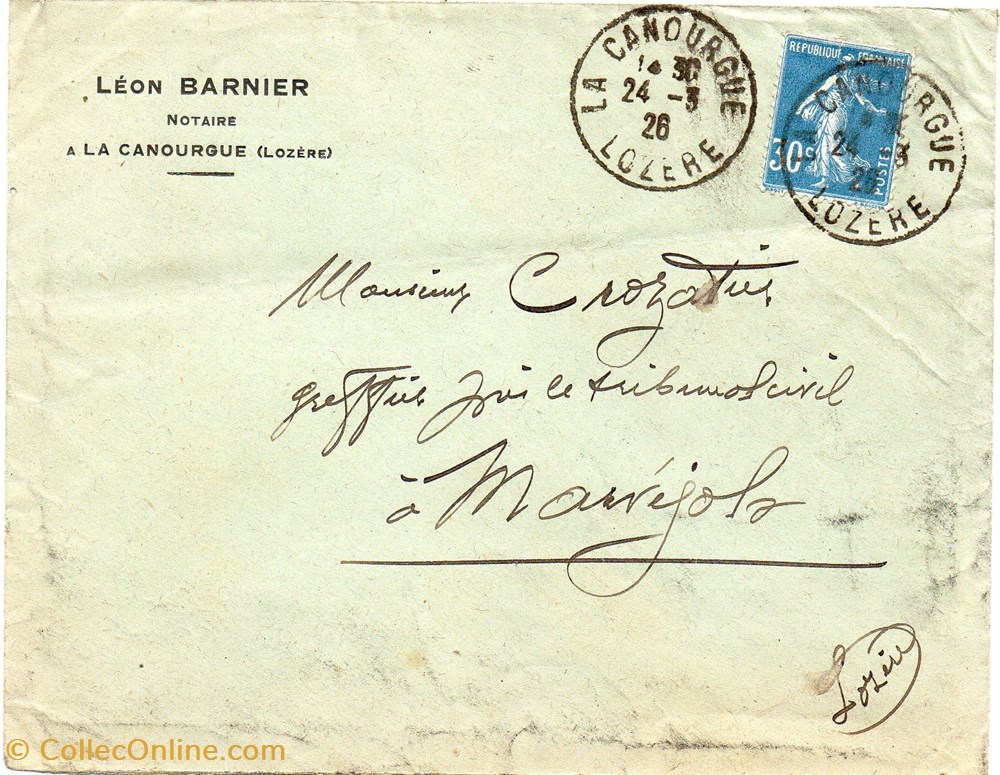 LÉON BARNIER
NOTAIRE
A LA CANOURGUE (LOZÈRE)
LA CANOURGUE
14 30
24 -3
26
LOZÈRE
REPUBLIQUE FRANÇAISE
30c
POSTES
CANOURGUE
24 3
26
LOZÈRE
Monsieur Crozatier
greffier près le tribunal civil
à Marvéjols
Lozère
© CollecOnline.com